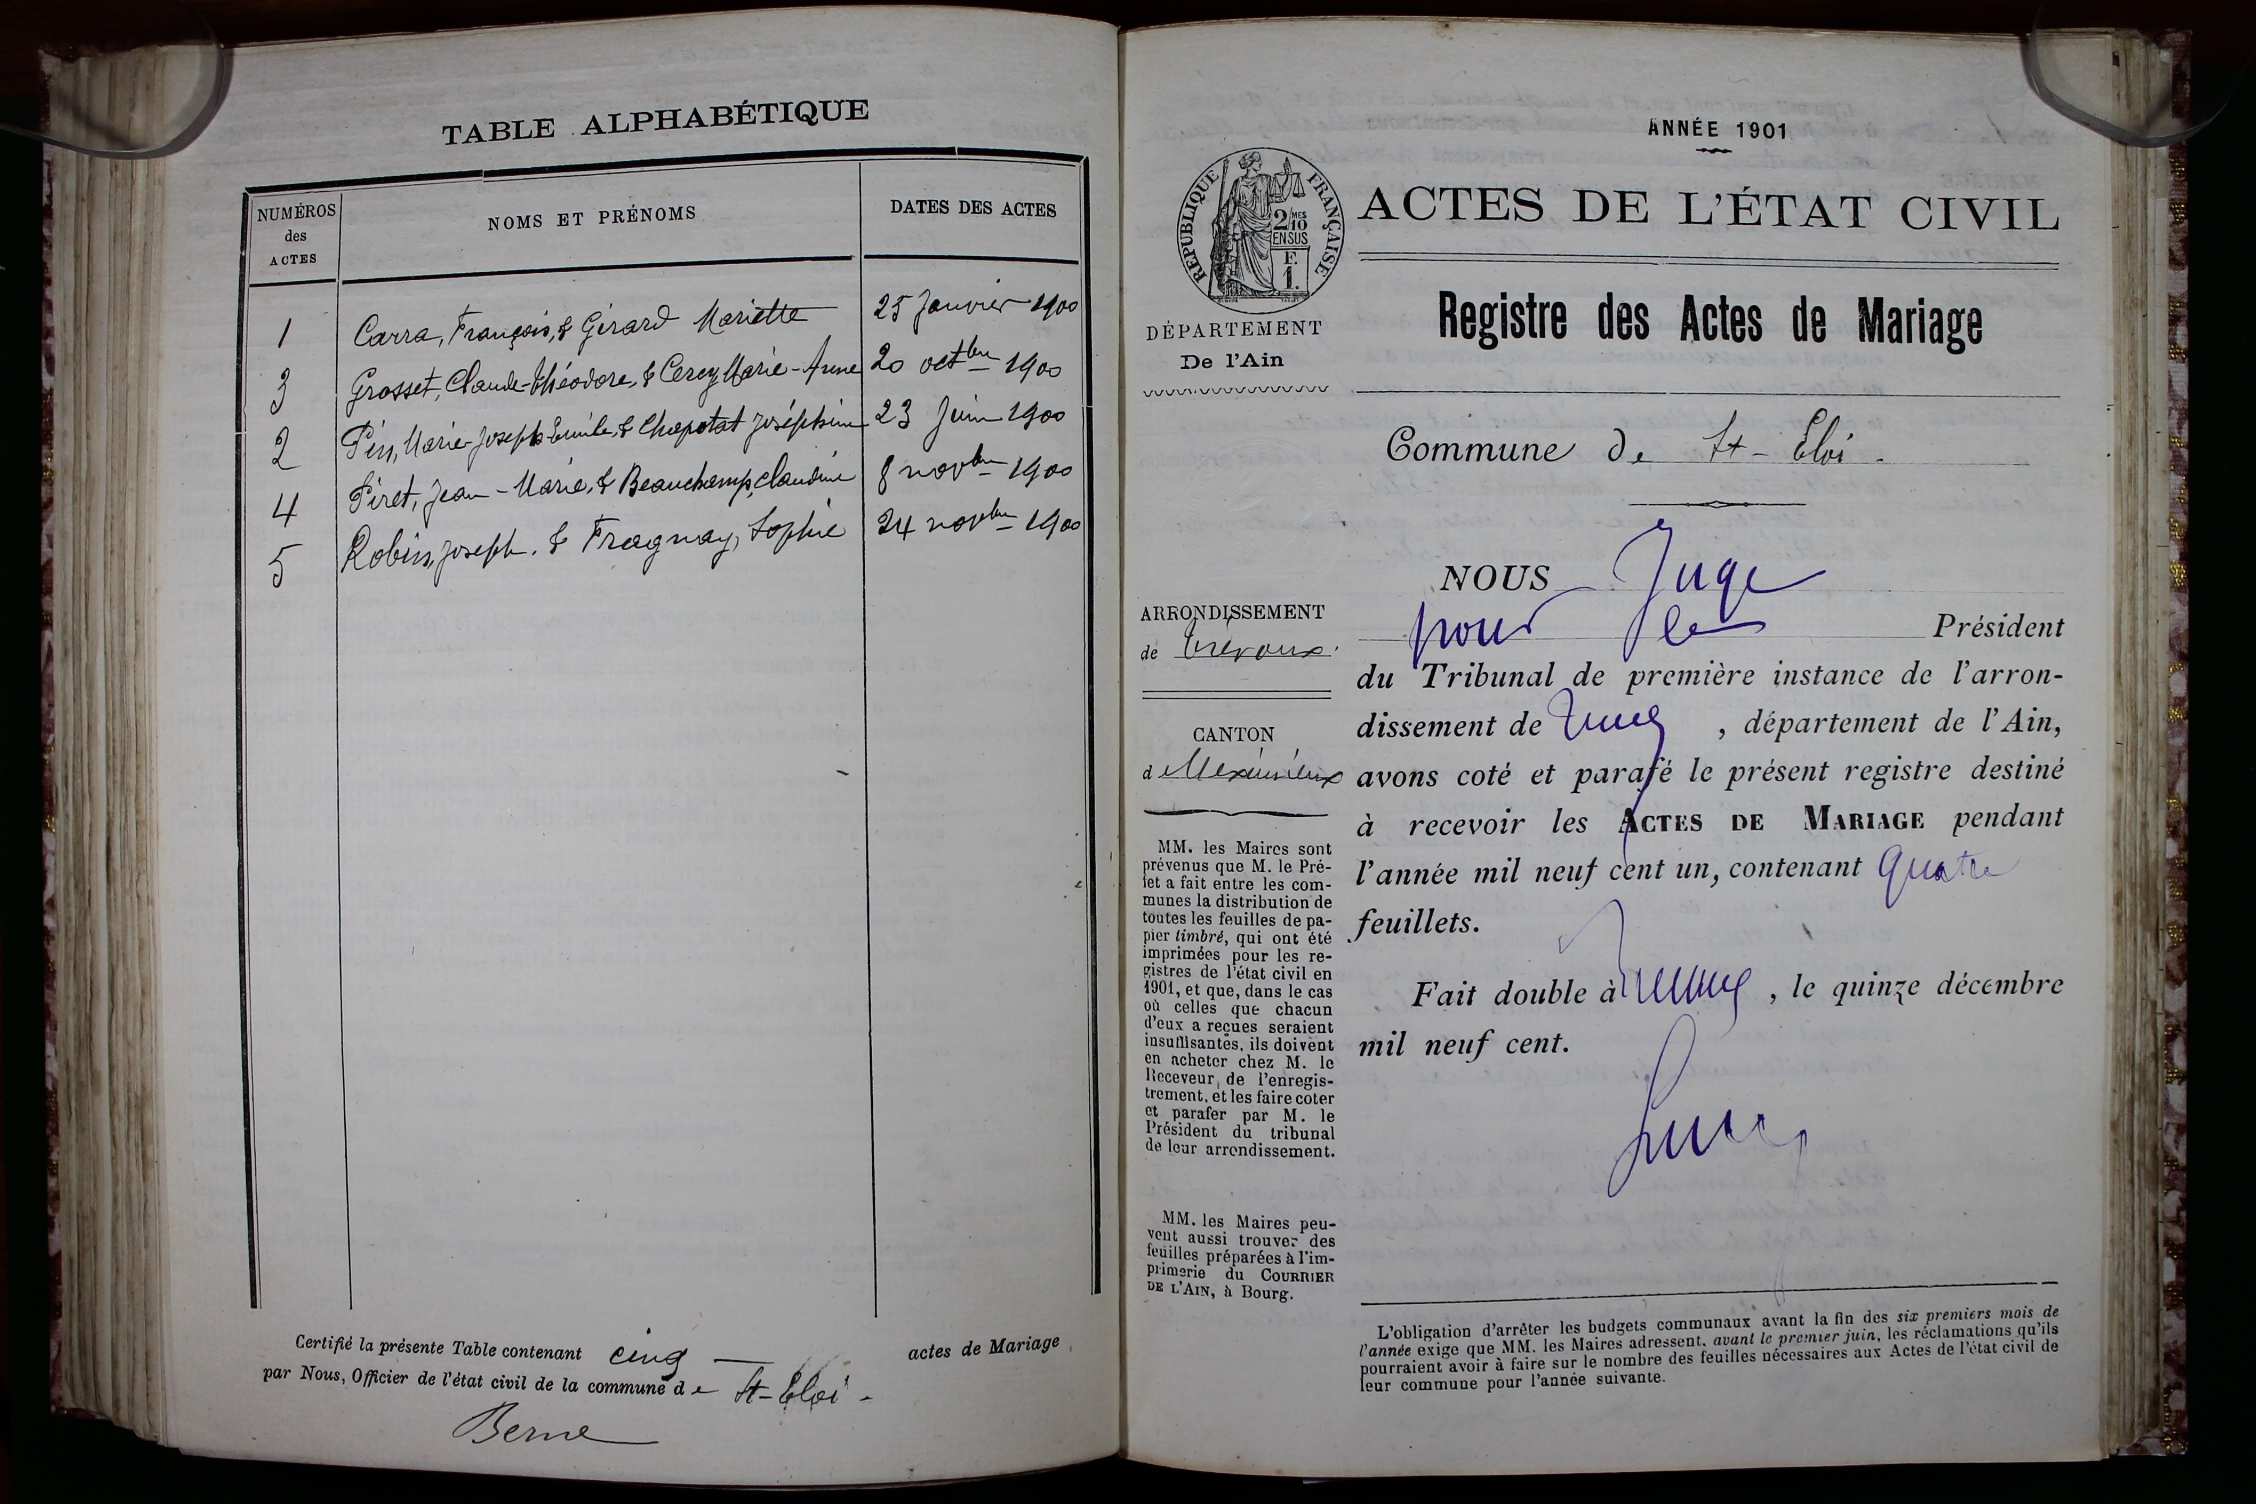 TABLE ALPHABÉTIQUE
NUMÉROS des ACTES
NOMS ET PRÉNOMS
DATES DES ACTES
1 Carra, François, & Gérard Mariette 25 Janvier 1900
3 Grosset, Claude-Théodore, & Cercy Marie-Anne 20 octbre 1900
2 Pin, Marie-Joseph Emile, & Chapotat Joséphine 23 Juin 1900
4 Piret, Jean-Marie, & Beauchamp, Claudine 8 novbre 1900
5 Robin, Joseph. & Fragnay, Sophie 24 novbre 1900
Certifié la présente Table contenant cinq — actes de Mariage
par Nous, Officier de l'état civil de la commune de St-Eloi -
Berne
ANNÉE 1901
RÉPUBLIQUE FRANÇAISE
2/10MES
EN SUS
F.
1.
ACTES DE L'ÉTAT CIVIL
DÉPARTEMENT
De l'Ain
Registre des Actes de Mariage
Commune de St-Eloi.
ARRONDISSEMENT
de Trévoux.
CANTON
de Meximieux
MM. les Maires sont
prévenus que M. le Pré-
fet a fait entre les com-
munes la distribution de
toutes les feuilles de pa-
pier timbré, qui ont été
imprimées pour les re-
gistres de l'état civil en
1901, et que, dans le cas
où celles que chacun
d'eux a reçues seraient
insuffisantes, ils doivent
en acheter chez M. le
Receveur de l'enregis-
trement, et les faire coter
et parafer par M. le
Président du tribunal
de leur arrondissement.
MM. les Maires peu-
vent aussi trouver des
feuilles préparées à l'im-
primerie du COURRIER
DE L'AIN, à Bourg.
NOUS Juge
pour le Président
du Tribunal de première instance de l'arron-
dissement de , département de l'Ain,
avons coté et parafé le présent registre destiné
à recevoir les ACTES DE MARIAGE pendant
l'année mil neuf cent un, contenant quatre
feuillets.
Fait double à , le quinze décembre
mil neuf cent.
L'obligation d'arrêter les budgets communaux avant la fin des six premiers mois de
l'année exige que MM. les Maires adressent, avant le premier juin, les réclamations qu'ils
pourraient avoir à faire sur le nombre des feuilles nécessaires aux Actes de l'état civil de
leur commune pour l'année suivante.